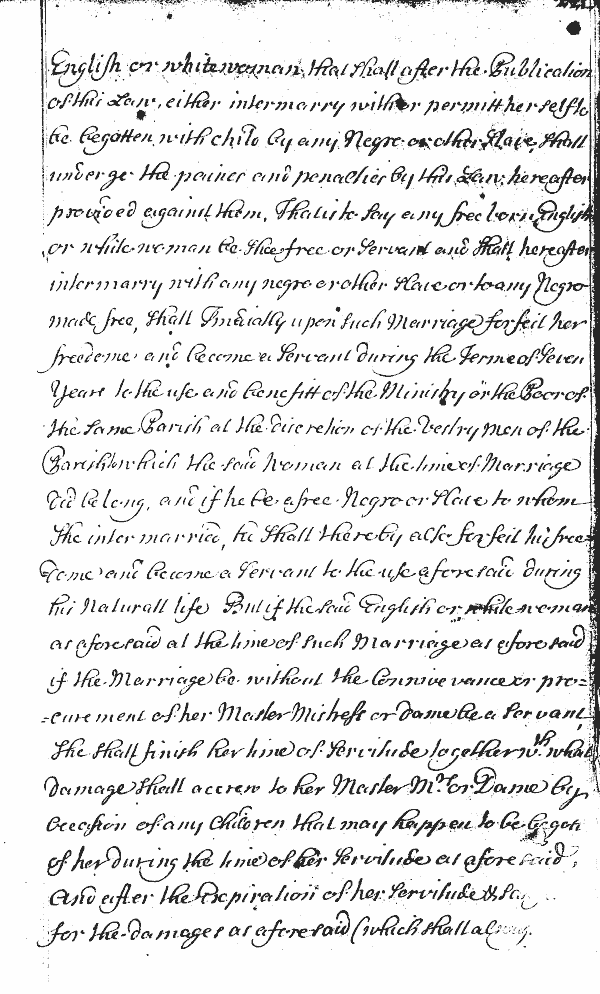 English or white woman, that shall after the Publication
of this Law, either intermarry with or permitt herself to
be begotten with child by any Negro or other Slave, Shall
undergo the paines and penalties by this Law, hereafter
provided against them, That is to say any free born English
or white woman be shee free or Servant and Shall hereafter
intermarry with any negro or other slave or to any Negro
made free, shall Imediatly upon such Marriage forfeit her
freedome and become a Servant during the Terme of Seven
Years to the use and benefitt of the Ministry or the Poor of
the same Parish at the discretion of the Vestry men of the
Parish which the said Woman at the time of Marriage
did belong, and if he be a free Negro or Slave to whom
She intermarried, he Shall thereby also forfeit his free=
dome and become a Servant to the use aforesaid during
his Naturall life But if the said English or white woman
as aforesaid at the time of such Marriage as aforesaid
if the Marriage be without the Connivevance or pro=
=curement of her Master Mistress or dame be a Servant
She shall finish her time of Servitude together wth. what
damage shall accrew to her Master Mrs. or Dame by
Occasion of any Children that may happen to be begott
of her during the time of her Servitude as aforesaid,
And after the Expiration of her Servitude &
for the damages as aforesaid (which shall